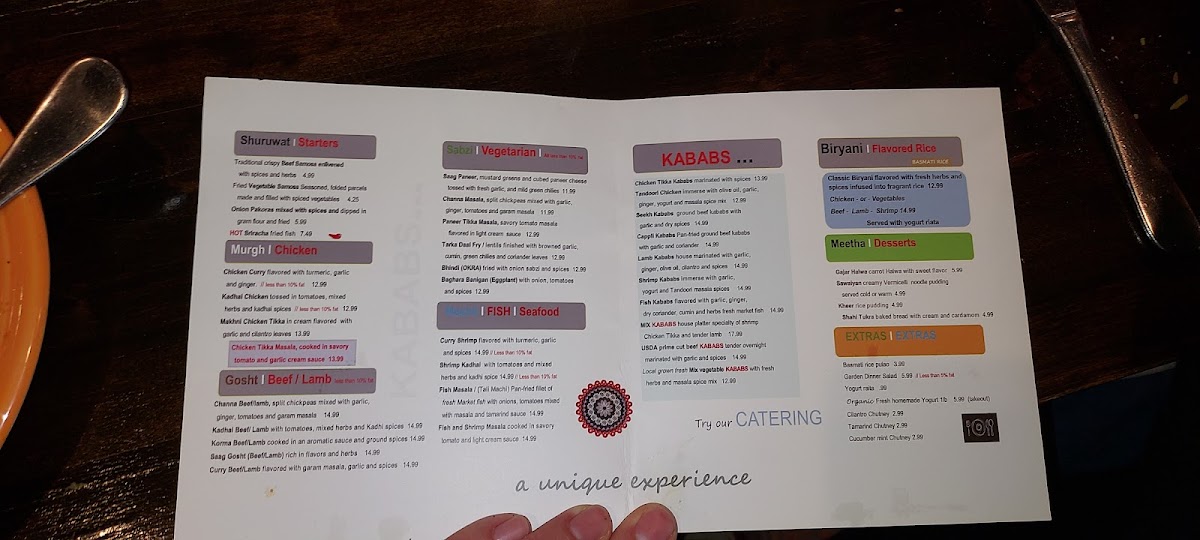 Shuruwat | Starters
Traditional crispy Beef Samosa enlivened
with spices and herbs 4.99
Fried Vegetable Samosa Seasoned, folded parcels
made and filled with spiced vegetables 4.25
Onion Pakoras mixed with spices and dipped in
gram flour and fried 5.99
HOT Sriracha fried fish 7.49
Murgh | Chicken
Chicken Curry flavored with turmeric, garlic
and ginger. // less than 10% fat 12.99
Kadhai Chicken tossed in tomatoes, mixed
herbs and kadhai spices // less than 10% fat 12.99
Makhni Chicken Tikka in cream flavored with
garlic and cilantro leaves 13.99
Chicken Tikka Masala, cooked in savory
tomato and garlic cream sauce 13.99
Gosht | Beef / Lamb less than 10% fat
Channa Beef/lamb, split chickpeas mixed with garlic,
ginger, tomatoes and garam masala 14.99
Kadhai Beef/ Lamb with tomatoes, mixed herbs and Kadhi spices 14.99
Korma Beef/Lamb cooked in an aromatic sauce and ground spices 14.99
Saag Gosht (Beef/Lamb) rich in flavors and herbs 14.99
Curry Beef/Lamb flavored with garam masala, garlic and spices 14.99
Sabzi | Vegetarian | All less than 10% fat
Saag Paneer, mustard greens and cubed paneer cheese
tossed with fresh garlic, and mild green chilies 11.99
Channa Masala, split chickpeas mixed with garlic,
ginger, tomatoes and garam masala 11.99
Paneer Tikka Masala, savory tomato masala
flavored in light cream sauce 12.99
Tarka Daal Fry / lentils finished with browned garlic,
cumin, green chilies and coriander leaves 12.99
Bhindi (OKRA) fried with onion sabzi and spices 12.99
Baghara Banigan (Eggplant) with onion, tomatoes
and spices 12.99
| FISH | Seafood
Curry Shrimp flavored with turmeric, garlic
and spices 14.99 // Less than 10% fat
Shrimp Kadhai with tomatoes and mixed
herbs and kadhi spice 14.99 // Less than 10% fat
Fish Masala / (Tali Machi) Pan-fried fillet of
fresh Market fish with onions, tomatoes mixed
with masala and tamarind sauce 14.99
Fish and Shrimp Masala cooked in savory
tomato and light cream sauce 14.99
KABABS ...
Chicken Tikka Kababs marinated with spices 13.99
Tandoori Chicken immerse with olive oil, garlic,
ginger, yogurt and masala spice mix 12.99
Seekh Kababs ground beef kababs with
garlic and dry spices 14.99
Cappli Kababs Pan-fried ground beef kababs
with garlic and coriander 14.99
Lamb Kababs house marinated with garlic,
ginger, olive oil, cilantro and spices 14.99
Shrimp Kababs immerse with garlic,
yogurt and Tandoori masala spices 14.99
Fish Kababs flavored with garlic, ginger,
dry coriander, cumin and herbs fresh market fish 14.99
MIX KABABS house platter specialty of shrimp
Chicken Tikka and tender lamb 17.99
USDA prime cut beef KABABS tender overnight
marinated with garlic and spices 14.99
Local grown fresh Mix vegetable KABABS with fresh
herbs and masala spice mix 12.99
Try our CATERING
Biryani | Flavored Rice
BASMATI RICE
Classic Biryani flavored with fresh herbs and
spices infused into fragrant rice 12.99
Chicken - or - Vegetables
Beef - Lamb - Shrimp 14.99
Served with yogurt riata
Meetha | Desserts
Gajar Halwa carrot Halwa with sweet flavor 5.99
Sawaiyan creamy Vermicelli noodle pudding
served cold or warm 4.99
Kheer rice pudding 4.99
Shahi Tukra baked bread with cream and cardamom 4.99
EXTRAS | EXTRAS
Basmati rice pulao 3.99
Garden Dinner Salad 5.99 // Less than 5% fat
Yogurt raita .99
Organic Fresh homemade Yogurt 1lb 5.99 (takeout)
Cilantro Chutney 2.99
Tamarind Chutney 2.99
Cucumber mint Chutney 2.99
a unique experience